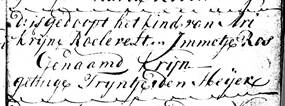 Do: is gedoopt het kind van Ari
krijne Roelevelt en Immetje Ros
Genaamd Krijn
getuige Trijntje den Heijer